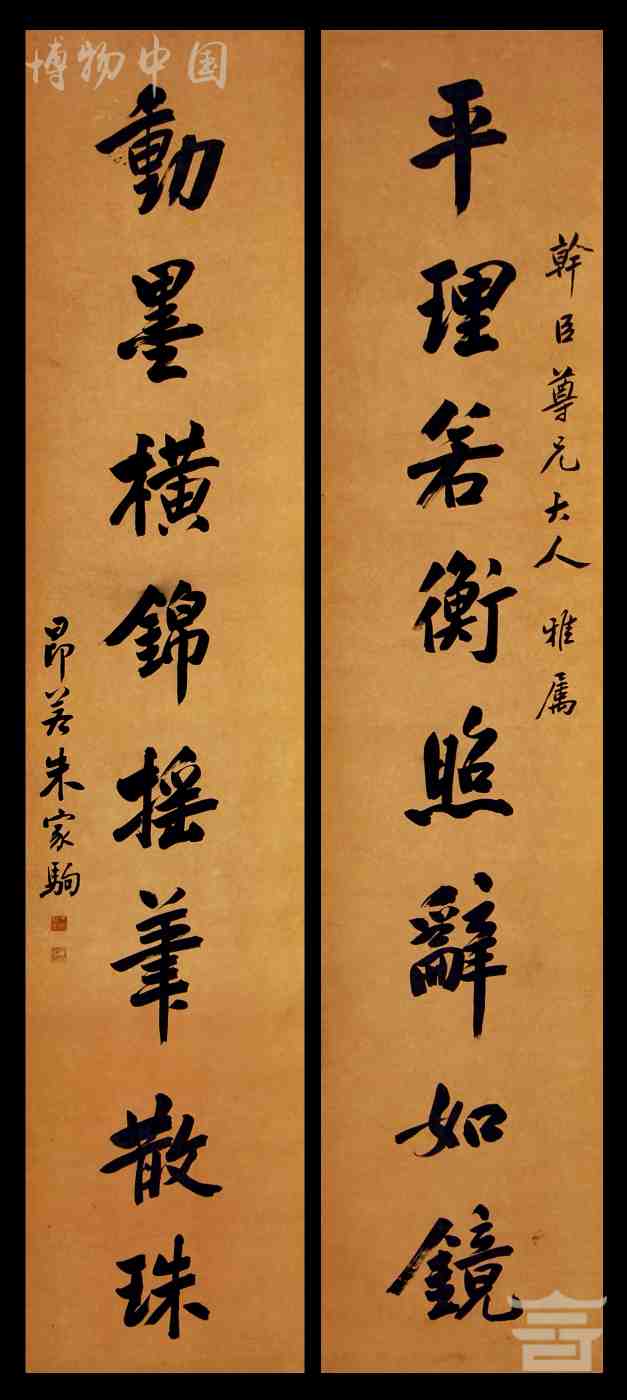 幹臣尊兄大人 雅属
平理若衡照辭如鏡
動墨橫錦摇筆散珠
昂若朱家駒
博物中国